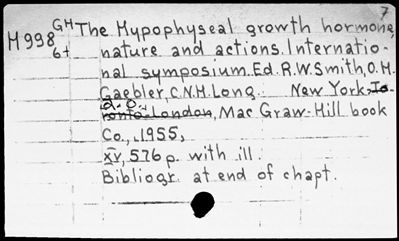 7
GH The Hypophyseal growth hormone,
M998
6+ nature and actions. Internatio-
nal symposium. Ed. R.W. Smith, O.H.
Gaebler, C.N.H. Long. New York, To-
a.o.
ronto-London, Mac Graw-Hill book
Co., 1955,
XV, 576 p. with ill.
Bibliogr. at end of chapt.